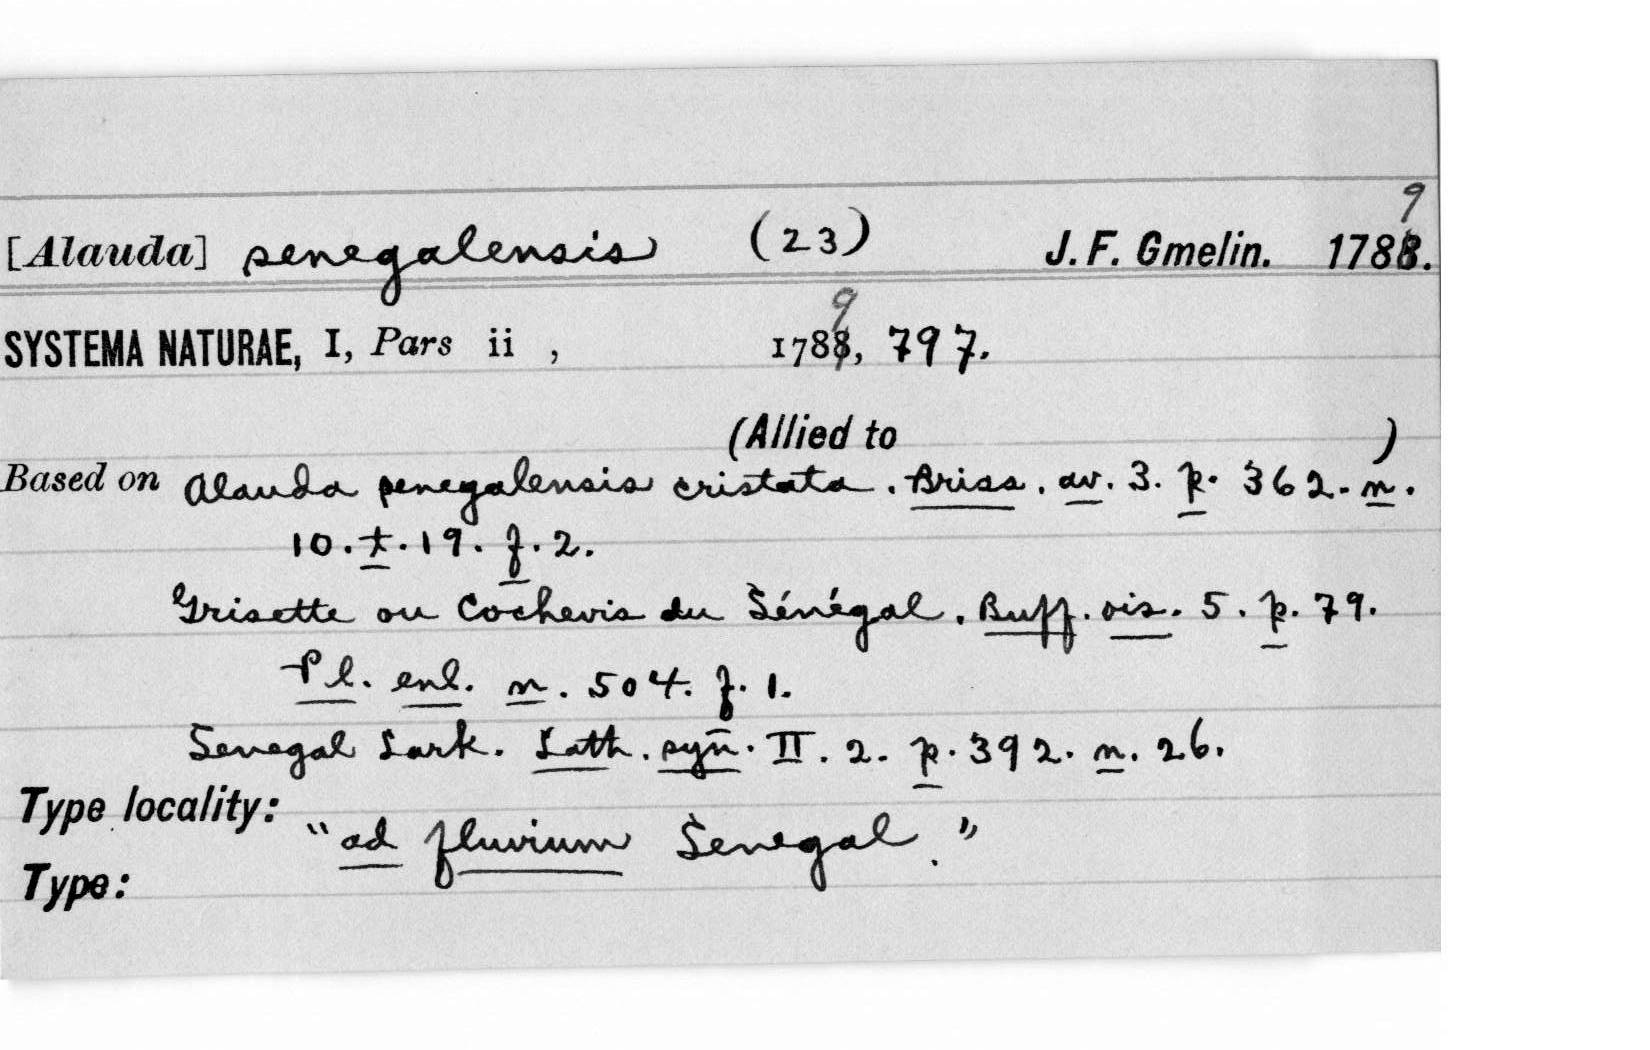 [Alauda] senegalensis (23) J. F. Gmelin. 1789.
SYSTEMA NATURAE, I, Pars ii , 1789, 797.
(Allied to )
Based on Alauda senegalensis cristata. Briss. av. 3. p. 362. n.
10. t. 19. f. 2.
Grisette ou Cochevis du Sénégal. Buff. ois. 5. p. 79.
Pl. enl. n. 504. f. 1.
Senegal Lark. Lath. syn. II. 2. p. 392. n. 26.
Type locality:
"ad fluvium Senegal."
Type: